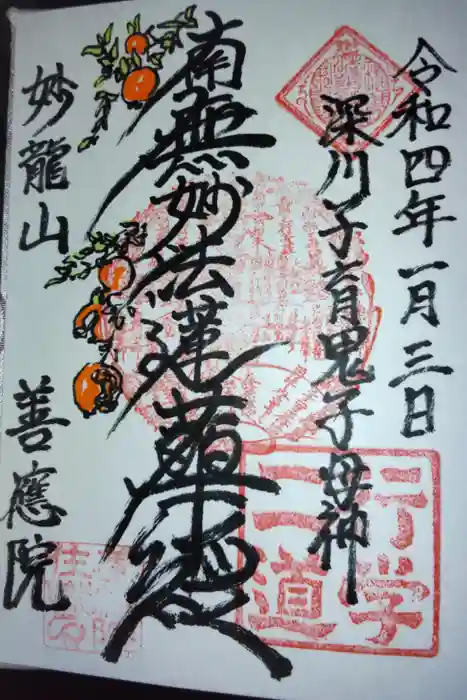 令和四年一月三日
深川子育鬼子母神
南無妙法蓮華経
妙龍山 善應院
行学
二道